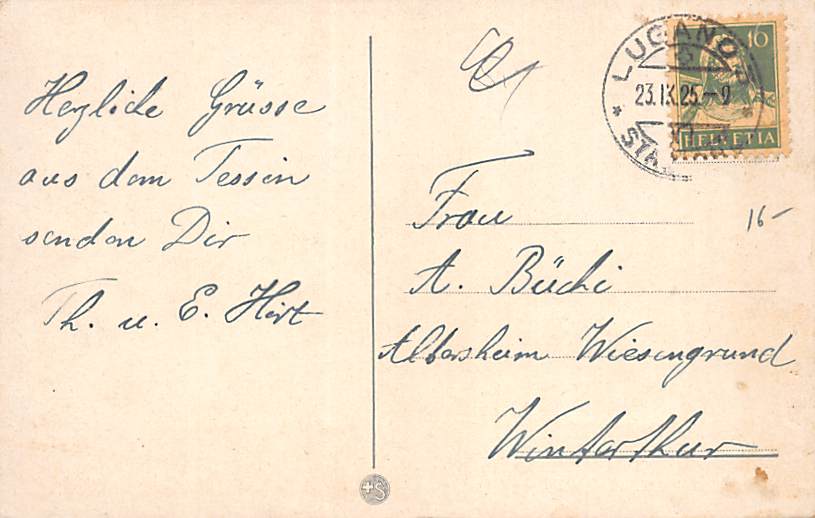 Herzliche Grüsse
aus dem Tessin
senden Dir
Th. u. E. Hirt
LUGANO
23.IX.25.-9
10
HELVETIA
16-
Frau
A. Büchi
Altersheim Wiesengrund
Winterthur
+S